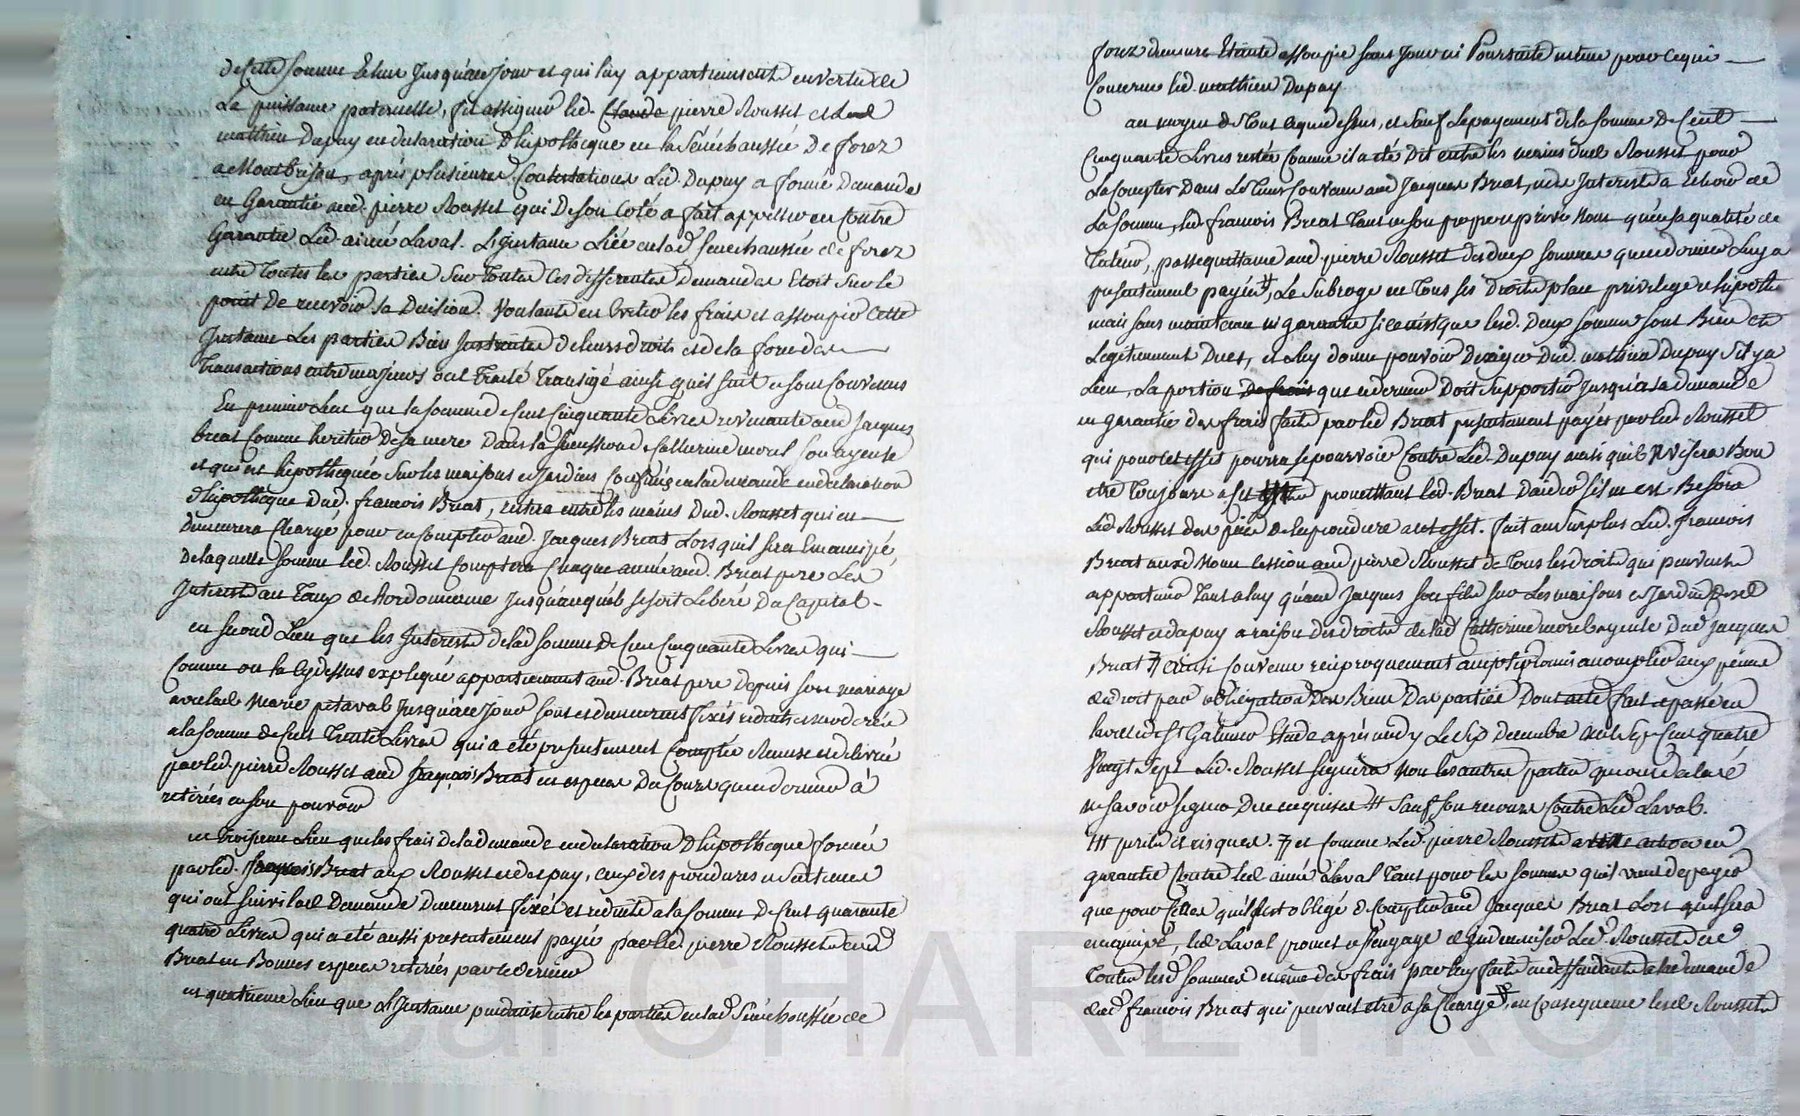 de cette somme Echus Jusqu'a ce jour et qui luy appartiennent en vertu de
La puissance paternelle, fit assigner led. Claude pierre Rousset et led
mathieu Dupuy en declaration d'hipotheque en la Sénéchaussée De forez
a Montbrison, aprés plusieures Contestations Led Dupuy a formé Demande
en Garantie aud. pierre Rousset qui De son Coté a fait appeller en Contre
Garantie Led aimé Laval. L'jnstance Liée en lad. Senechaussée de forez
entre Toutes les parties Sur Toutes Ces differentes Demandes Etoit Sur le
point De recevoir sa Decision. Voulants en Eviter les frais et assoupir Cette
Jnstance Les parties Bien Jnstruites de leurs droits et de la force des
Transactions entre majeurs ont Traité Transigé ainsi qu'il suit et sont Convenus
En premier Lieu que la somme de Cent Cinquante Livres revenante aud Jacques
breat Comme heritier De sa mere Dans la succession de Catherine morel son ayeule
et qui est hipothequée Sur les maisons et Jardins Confinés en lad demande en declaration
d'hipotheque Dud. francois Breat, restera entre les mains Dud. Rousset qui en
demeurera Chargé pour en Compter aud. Jacques Breat Lors qu'il sera Emancipé,
De laquelle somme led. Rousset Comptera Chaque année aud. Breat pere Les
Jnterets au Taux de l'ordonnance Jusqu'a ce qu'il se soit Liberé Du Capital.
en second Lieu que les Jnterets de lad somme de Cent Cinquante Livres qui
Comme on l'a Cy dessus expliqué appartiennent aud. Breat pere Depuis son mariage
avec lad Marie petaval Jusqu'a ce jour sont et demeurent fixés reduits et moderés
a la somme de Cent Trente Livres qui a eté presentement Comptée Remise et delivrée
par led. pierre Rousset aud francois Breat en especes Du Cours que ce dernier à
retirées en son pouvoir
en Troisieme Lieu que les frais de la demande en declaration d'hipotheque formée
par led. francois Breat aux Rousset et dupuy, ceux des procedures et sentences
qui ont suivi lad Demande Demeurent fixés et reduits a la somme De Cent quarante
quatre Livres qui a eté aussi presentement payée par led. pierre Rousset aud
Breat en Bonnes especes retirées par ce dernier
en quatrieme Lieu que L'jnstance pendante entre les parties en lad Sénéchaussée de
forez demeure Eteinte assoupie sans Jour ni Poursuite même pour ce qui
Concerne led. mathieu Dupuy
au moyen de Tout ce que dessus, et sauf Le payement de la somme De Cent
Cinquante Livres restée Comme il a eté Dit entre les mains dud Rousset pour
La Compter Dans Le Tems Convenu aud Jacques Breat, et des Jnterets a Echoir de
La somme, led. francois Breat Tant en son propre et privé Nom qu'en sa qualité de
Tuteur, passe quittance aud. pierre Rousset des deux sommes que ce dernier Luy a
presentement payées, Le Subroge en Tous ses Droits place privilege et hipotheque
mais sans maintenue ni garantie si ce n'est que lesd. Deux sommes sont Bien et
Legitimement Dues, et luy donne pouvoir D'exiger Dud. mathieu Dupuy S'il y a
Lieu, La portion De frais que ce dernier Doit Supporter Jusqu'a sa demande
en garantie des frais faits par led Breat presentement payés par led. Rousset
qui pour cet effet pourra se pourvoir Contre Led. Dupuy ainsi qu'il avisera Bon
etre Toujours a ses promettant led. Breat D'aider s'il en est Besoin
Led Rousset des pieces de la procedure a cet effet. fait au surplus Led. francois
Breat aux d Noms Cession aud pierre Rousset de Tous les droits qui peuvent
appartenir Tant a luy qu'aud Jacques son fils sur Les maisons et Jardin desd
Rousset et dupuy a raison des droits de lad Catherine morel ayeule Dud Jacques
Breat # ainsi Convenu reciproquement accepté promis accomplir aux peines
de droit par obligation Des Biens Des parties Dont acte fait et passé en
la ville de St Galmier Etude aprés midy Le Six Decembre mil Sept Cent quatre
Vingt Sept Led. Rousset signera Non les autres parties qui ont declaré
ne savoir signer De ce enquises # Sauf son recours Contre led Laval.
## perils et risques. # et comme Led. pierre Rousset a action en
garantie Contre led aimé Laval Tant pour les sommes qu'il vient de payer
que pour Celles qu'il s'est obligé de Compter aud Jacques Breat Lors qu'il sera
emancipé, led Laval promet et s'engage d'jndemniser Led. Rousset de
toutes lesd sommes et même des frais par luy faits en deffendant a la demande
dud francois Breat qui peuvent etre a sa Charge, en Consequence led Rousset